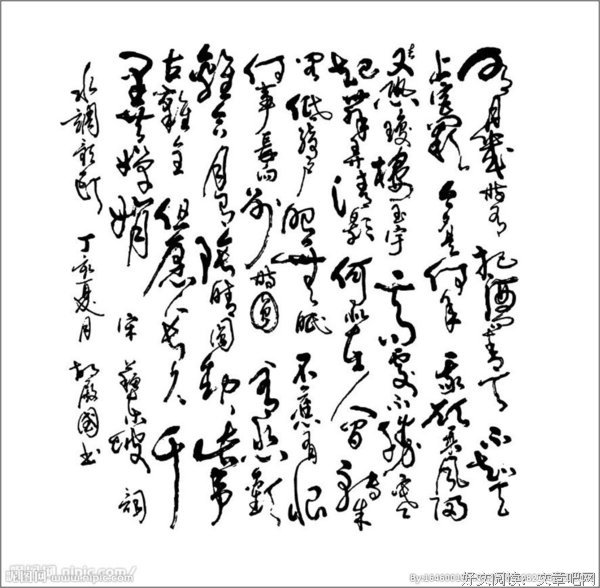 明月幾時有 把酒問青天 不知天
上宮闕 今夕是何年 我欲乘風歸
去又恐瓊樓玉宇 高處不勝寒
起舞弄清影 何似在人間 轉朱
閣低綺戶 照無眠 不應有恨
何事長向別時圓 人有悲歡
離合月有陰晴圓缺 此事
古難全 但願人長久 千
里共嬋娟 宋 蘇東坡 詞
水調歌頭 丁亥夏月 國書
昵图网 www.nipic.com